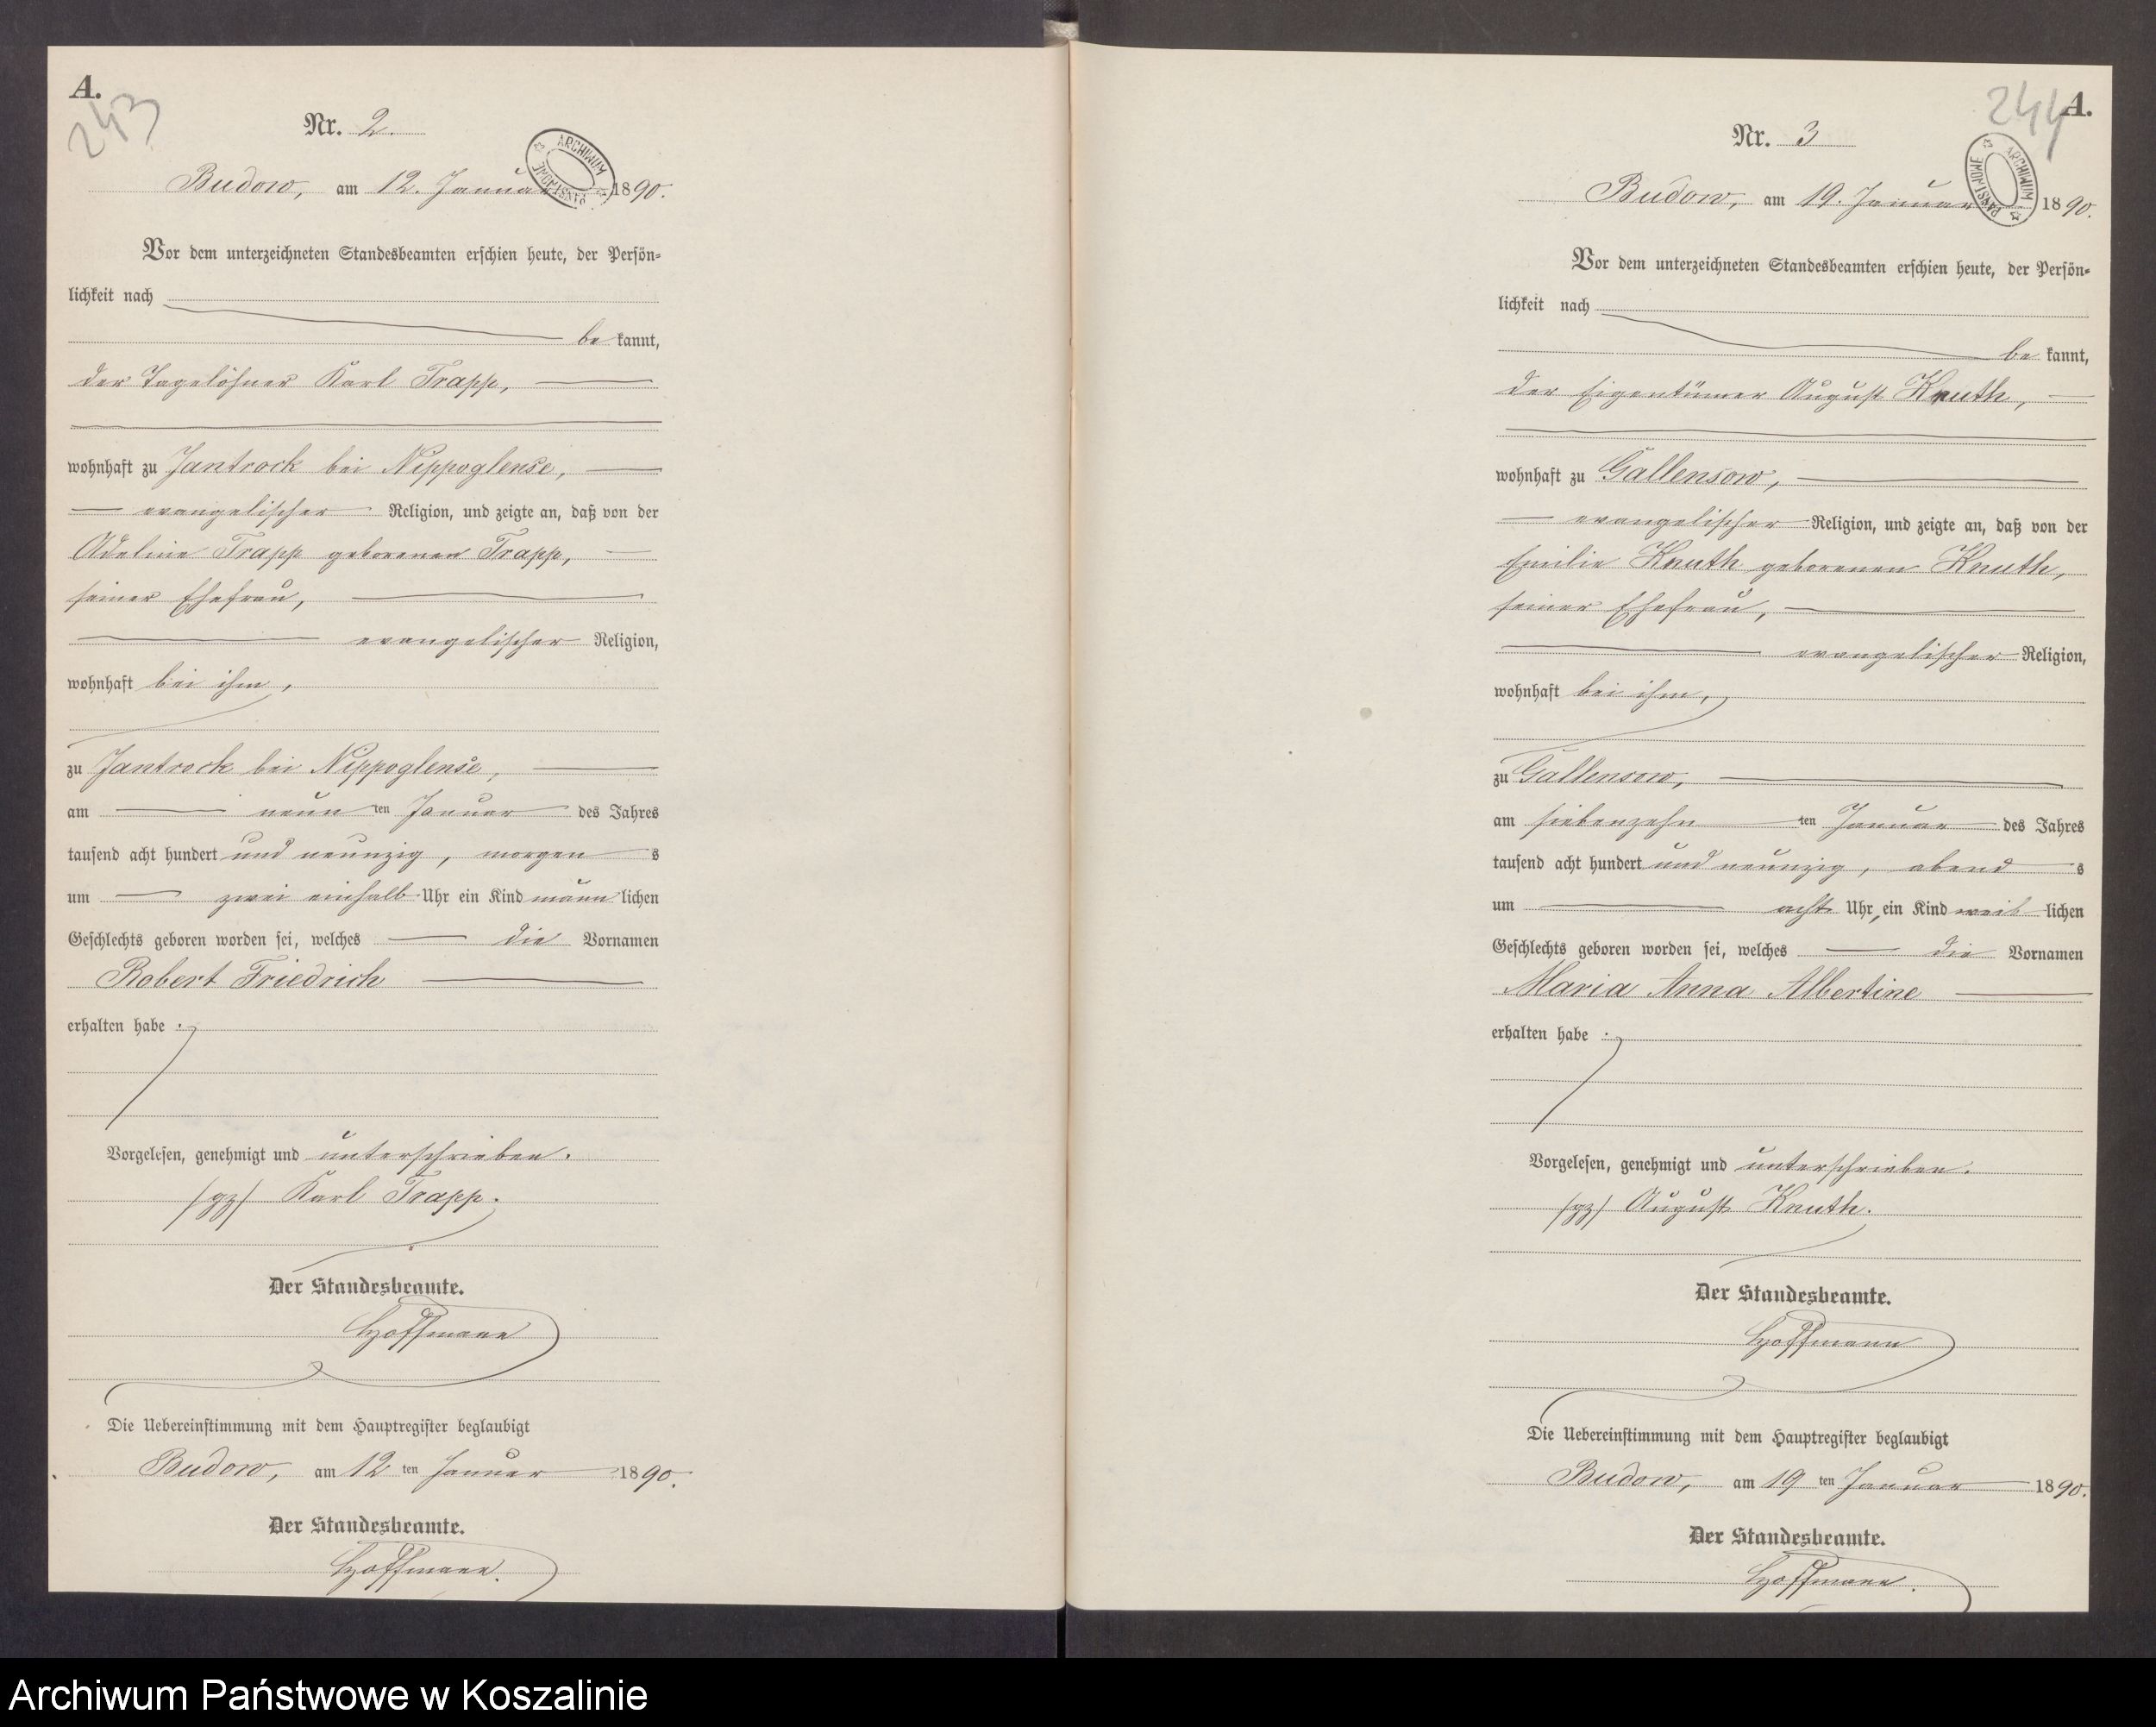 A.
243
Nr. 2.
ARCHIWUM PAŃSTWOWE
Budow, am 12. Januar 1890.
Vor dem unterzeichneten Standesbeamten erschien heute, der Persön-
lichkeit nach
be kannt,
der Tagelöhner Karl Trapp,
wohnhaft zu Jantrock bei Nippoglense,
evangelischer Religion, und zeigte an, daß von der
Adeline Trapp geborenen Trapp,
seiner Ehefrau,
evangelischer Religion,
wohnhaft bei ihm,
zu Jantrock bei Nippoglense,
am neun ten Januar des Jahres
tausend acht hundert und neunzig, morgen s
um zwei einhalb Uhr ein Kind männ lichen
Geschlechts geboren worden sei, welches die Vornamen
Robert Friedrich
erhalten habe.
Vorgelesen, genehmigt und unterschrieben.
/gz/ Karl Trapp.
Der Standesbeamte.
Hoffmann
Die Uebereinstimmung mit dem Hauptregister beglaubigt
Budow, am 12 ten Januar 1890.
Der Standesbeamte.
Hoffmann.
244
A.
Nr. 3
ARCHIWUM PAŃSTWOWE
Budow, am 19. Januar 1890.
Vor dem unterzeichneten Standesbeamten erschien heute, der Persön-
lichkeit nach
be kannt,
der Eigentümer August Knuth,
wohnhaft zu Gallensow,
evangelischer Religion, und zeigte an, daß von der
Emilie Knuth geborenen Knuth,
seiner Ehefrau,
evangelischer Religion,
wohnhaft bei ihm,
zu Gallensow,
am siebenzehn ten Januar des Jahres
tausend acht hundert und neunzig, abend s
um acht Uhr, ein Kind weib lichen
Geschlechts geboren worden sei, welches die Vornamen
Maria Anna Albertine
erhalten habe.
Vorgelesen, genehmigt und unterschrieben.
/gz/ August Knuth.
Der Standesbeamte.
Hoffmann
Die Uebereinstimmung mit dem Hauptregister beglaubigt
Budow, am 19 ten Januar 1890.
Der Standesbeamte.
Hoffmann.
Archiwum Państwowe w Koszalinie